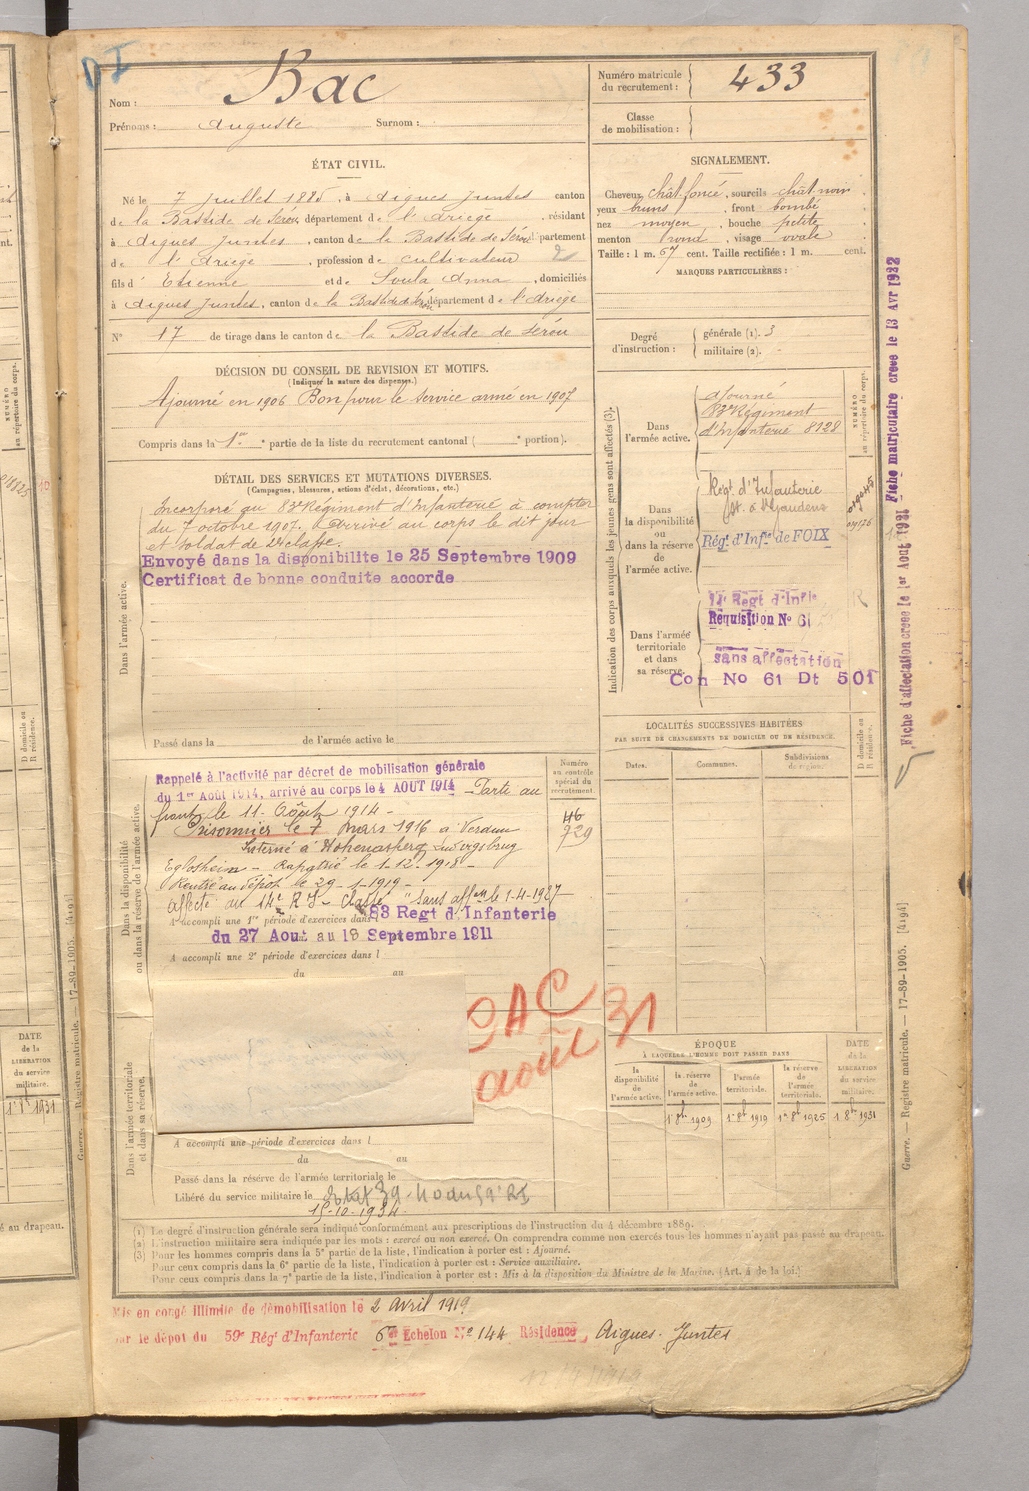 Nom : Bac
Prénoms : Auguste Surnom :
Numéro matricule du recrutement : 433
Classe de mobilisation :
ÉTAT CIVIL.
Né le 7 Juillet 1885, à Aigues Juntes canton
de la Bastide de Sérou, département de l'Ariège, résidant
à Aigues Juntes, canton de la Bastide de Sérou département
de l'Ariège, profession de cultivateur
fils d Etienne et de Soula Anna, domiciliés
à Aigues Juntes, canton de la Bastide de Sérou département de l'Ariège
N° 17 de tirage dans le canton de la Bastide de Sérou
SIGNALEMENT.
Cheveux chât. foncé, sourcils chât. noir
yeux bruns, front bombé
nez moyen, bouche petite
menton rond, visage ovale
Taille : 1 m. 67 cent. Taille rectifiée : 1 m. cent.
MARQUES PARTICULIÈRES :
Degré d'instruction : générale (1). 3
militaire (2).
DÉCISION DU CONSEIL DE REVISION ET MOTIFS.
(Indiquer la nature des dispenses.)
Ajourné en 1906 Bon pour le service armé en 1907
Compris dans la 1re partie de la liste du recrutement cantonal ( portion).
DÉTAIL DES SERVICES ET MUTATIONS DIVERSES.
(Campagnes, blessures, actions d'éclat, décorations, etc.)
Dans l'armée active.
Incorporé au 83e Régiment d'Infanterie à compter
du 7 octobre 1907. Arrivé au corps le dit jour
et soldat de 2e classe.
Envoyé dans la disponibilite le 25 Septembre 1909
Certificat de bonne conduite accorde
Passé dans la de l'armée active le
Indication des corps auxquels les jeunes gens sont affectés (3).
NUMÉRO au répertoire du corps.
Dans l'armée active.
ajourné
83e Régiment
d'Infanterie 8128
Dans la disponibilité ou dans la réserve de l'armée active.
Régt d'Infanterie
St. Gaudens
Régt d'Infie de FOIX
Dans l'armée territoriale et dans sa réserve.
14e Regt d'Infie
Requisition N° 61
sans affectation
Con No 61 Dt 501
Fiche d'affectation creee le 1er Aout 1921 Fiche matriculaire creee le 13 Avr 1922
LOCALITÉS SUCCESSIVES HABITÉES
PAR SUITE DE CHANGEMENTS DE DOMICILE OU DE RÉSIDENCE.
D domicile ou R résidence.
Dates. Communes. Subdivisions de région.
Dans la disponibilité ou dans la réserve de l'armée active.
Numéro au contrôle spécial du recrutement.
46
729
Rappelé à l'activité par décret de mobilisation générale
du 1er Août 1914, arrivé au corps le 4 AOUT 1914 Parti au
front le 11 Août 1914 -
Prisonnier le 7 mars 1916 à Verdun
Interné à Hohenasperg Ludwigsbrug
Eglosheim - Rapatrié le 1.12.1918 -
Rentré au dépôt le 29-1-1919 -
affecté au 14e R I - Classé "sans affon le 1-4-1927
A accompli une 1re période d'exercices dans l 83 Regt d'Infanterie
du 27 Aout au 18 Septembre 1911
A accompli une 2e période d'exercices dans l
du au
PAC
août 31
Dans l'armée territoriale et dans sa réserve.
A accompli une période d'exercices dans l
du au
Passé dans la réserve de l'armée territoriale le
Libéré du service militaire le
15-10-1934
ÉPOQUE
À LAQUELLE L'HOMME DOIT PASSER DANS
la disponibilité de l'armée active. la réserve de l'armée active. l'armée territoriale. la réserve de l'armée territoriale. DATE de la LIBÉRATION du service militaire.
1er 8bre 1909 1er 8bre 1919 1er 8bre 1925 1 8bre 1931
(1) Le degré d'instruction générale sera indiqué conformément aux prescriptions de l'instruction du 4 décembre 1889.
(2) L'instruction militaire sera indiquée par les mots : exercé ou non exercé. On comprendra comme non exercés tous les hommes n'ayant pas passé au drapeau.
(3) Pour les hommes compris dans la 5e partie de la liste, l'indication à porter est : Ajourné.
Pour ceux compris dans la 6e partie de la liste, l'indication à porter est : Service auxiliaire.
Pour ceux compris dans la 7e partie de la liste, l'indication à porter est : Mis à la disposition du Ministre de la Marine. (Art. 4 de la loi.)
Guerre. — Registre matricule. — 17-89-1905. [4194]
Mis en congé illimité de démobilisation le 2 avril 1919
par le dépot du 59e Régt d'Infanterie 6e Echelon N° 144 Résidence Aigues-Juntes